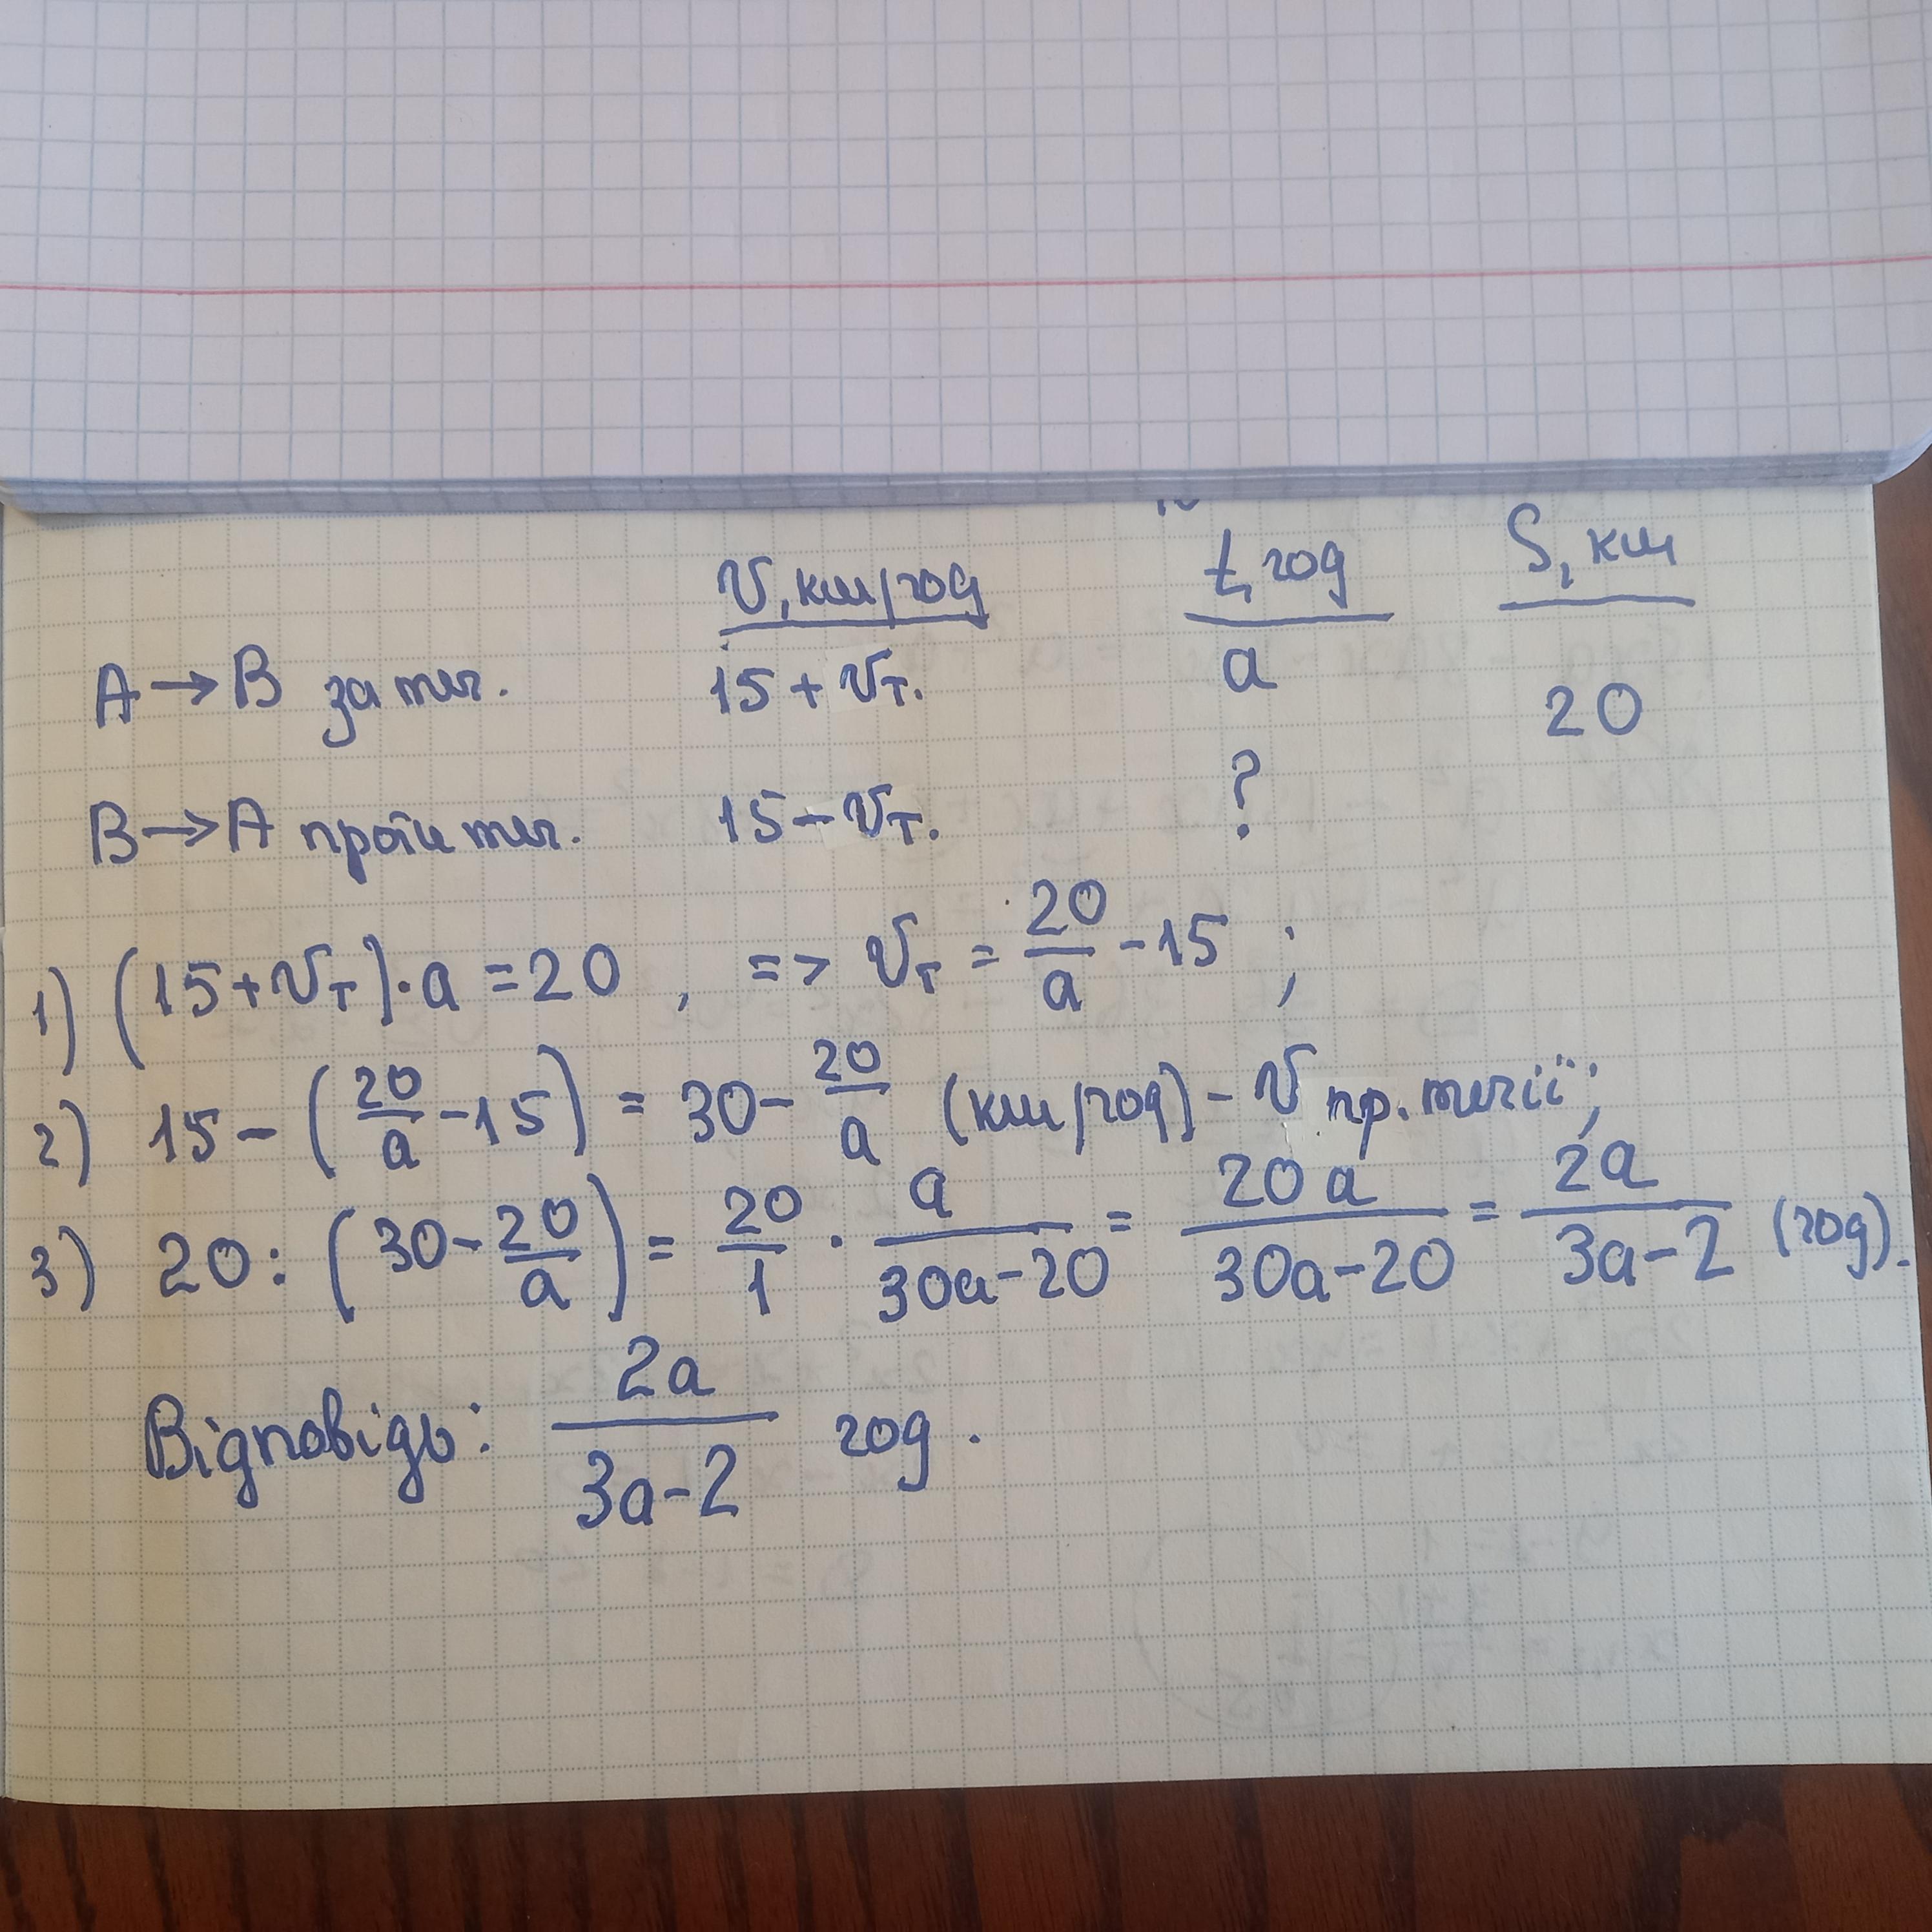 V, км/год t, год S, км
A → B за теч. 15 + Vт. a 20
B → A проти теч. 15 - Vт. ?
1) (15 + Vт) · a = 20 , => Vт = 20/a - 15 ;
2) 15 - (20/a - 15) = 30 - 20/a (км/год) - V пр. течії;
3) 20 : (30 - 20/a) = 20/1 · a/(30a-20) = 20a/(30a-20) = 2a/(3a-2) (год).
Відповідь: 2a/(3a-2) год.